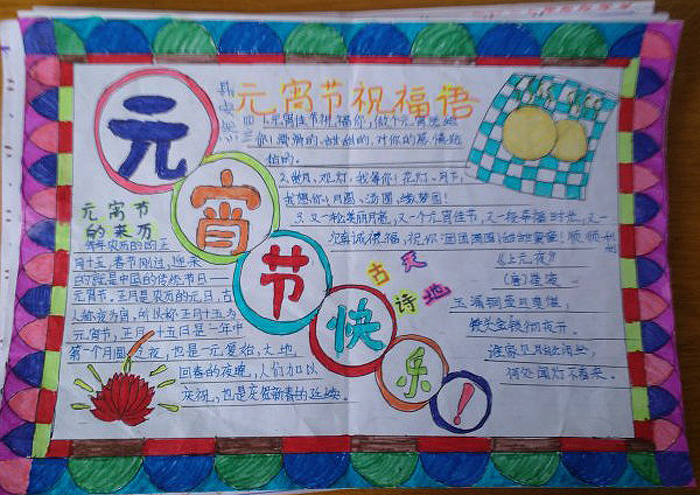 元
宵
节
快
乐
！
元宵节祝福语
1.元宵佳节祝福你,做个元宵送给
你!滑滑的,甜甜的,对你的感情粘
粘的。
2.做风,观灯,我等你!花灯,月下,
我想你!月圆,汤圆,缘梦园!
3.又一轮美丽月亮,又一个元宵佳节,又一段幸福时光,又一
元宵节
的来历
每年农历的
月十五,春节刚过,迎来
的就是中国的传统节日——
元宵节,正月是农历的元月,古
人称夜为宵,所以称正月十五为
元宵节,正月十五日是一年中
第一个月圆之夜,也是一元复始,大地
回春的夜晚,人们加以
庆祝,也是庆贺新春的延续。
古灵
诗地
《上元夜》
(唐)崔液
玉漏铜壶且莫催,
铁关金锁彻夜开。
谁家见月能闲坐,
何处闻灯不看来。